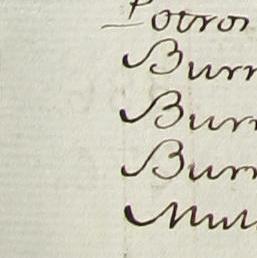 Potron
Burr
Burr
Burr
Mul